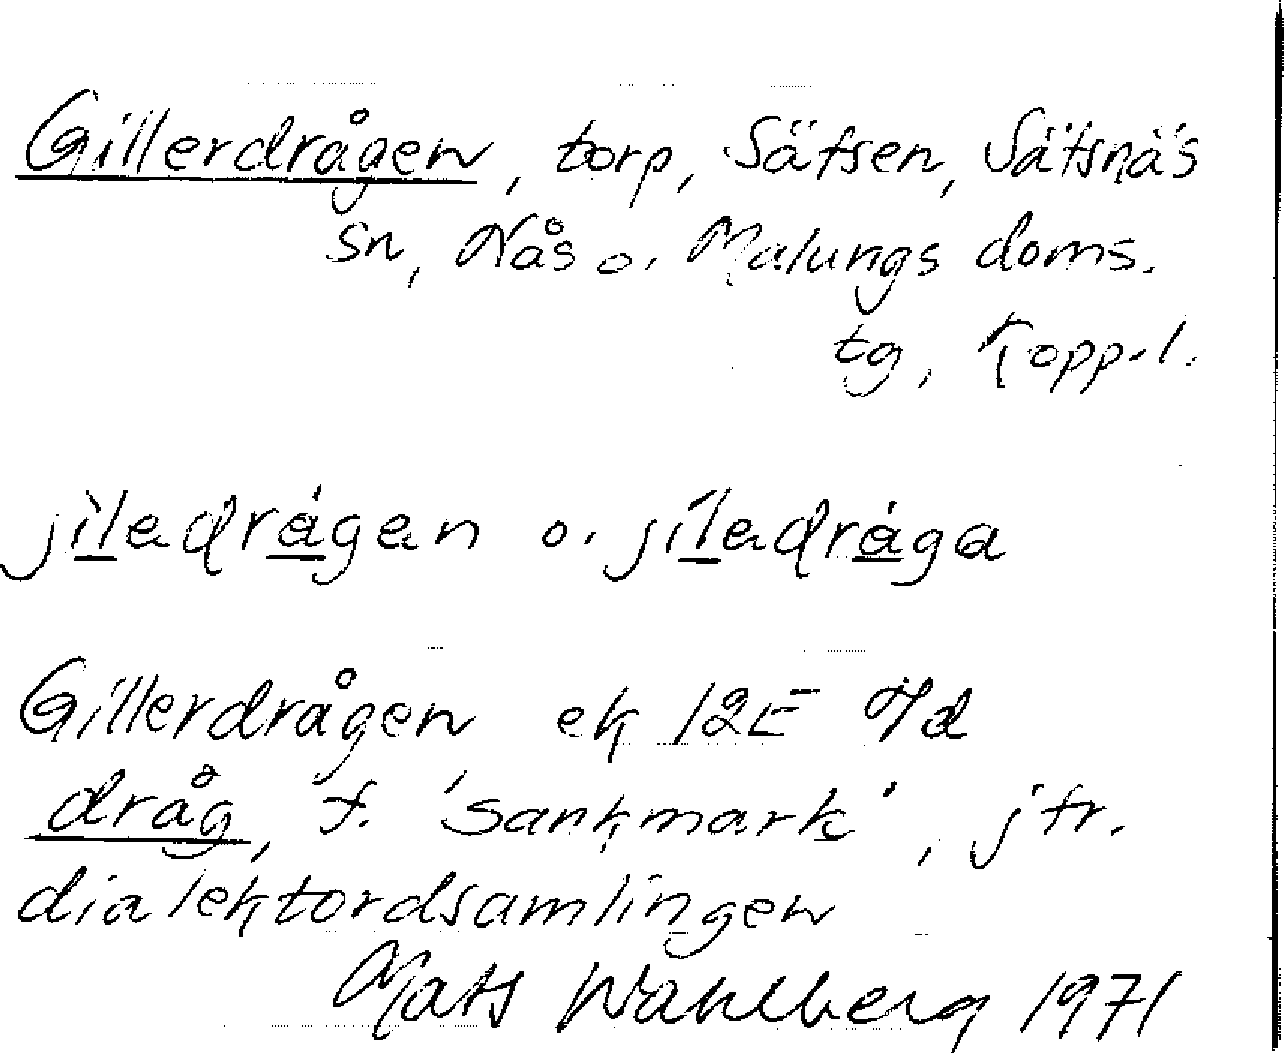 Gillerdrågen, torp, Sätsen, Sätsnäs
sn, Nås o. Malungs doms.
tg, Kopp. l.
jìledrágen o. jíledrága
Gillerdrågen ek 12E 9d
dråg, f. 'sankmark', jfr.
dialektordsamlingen
Mats Wahlberg 1971